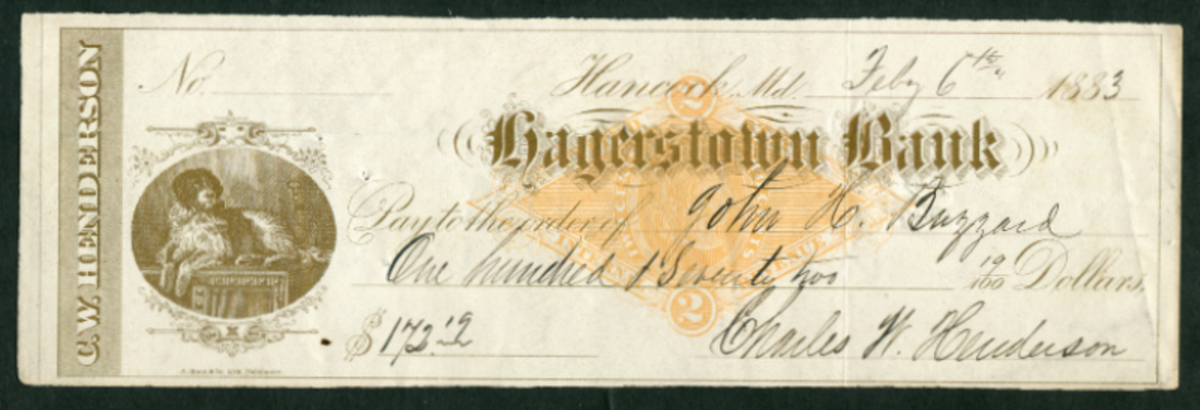 C. W. HENDERSON
No.
Hancock, Md. Feby 6th, 1883
2
Hagerstown Bank
Pay to the order of John H. Buzzard
One hundred & Seventy two 19/100 Dollars,
2
$172.19
Charles W. Henderson